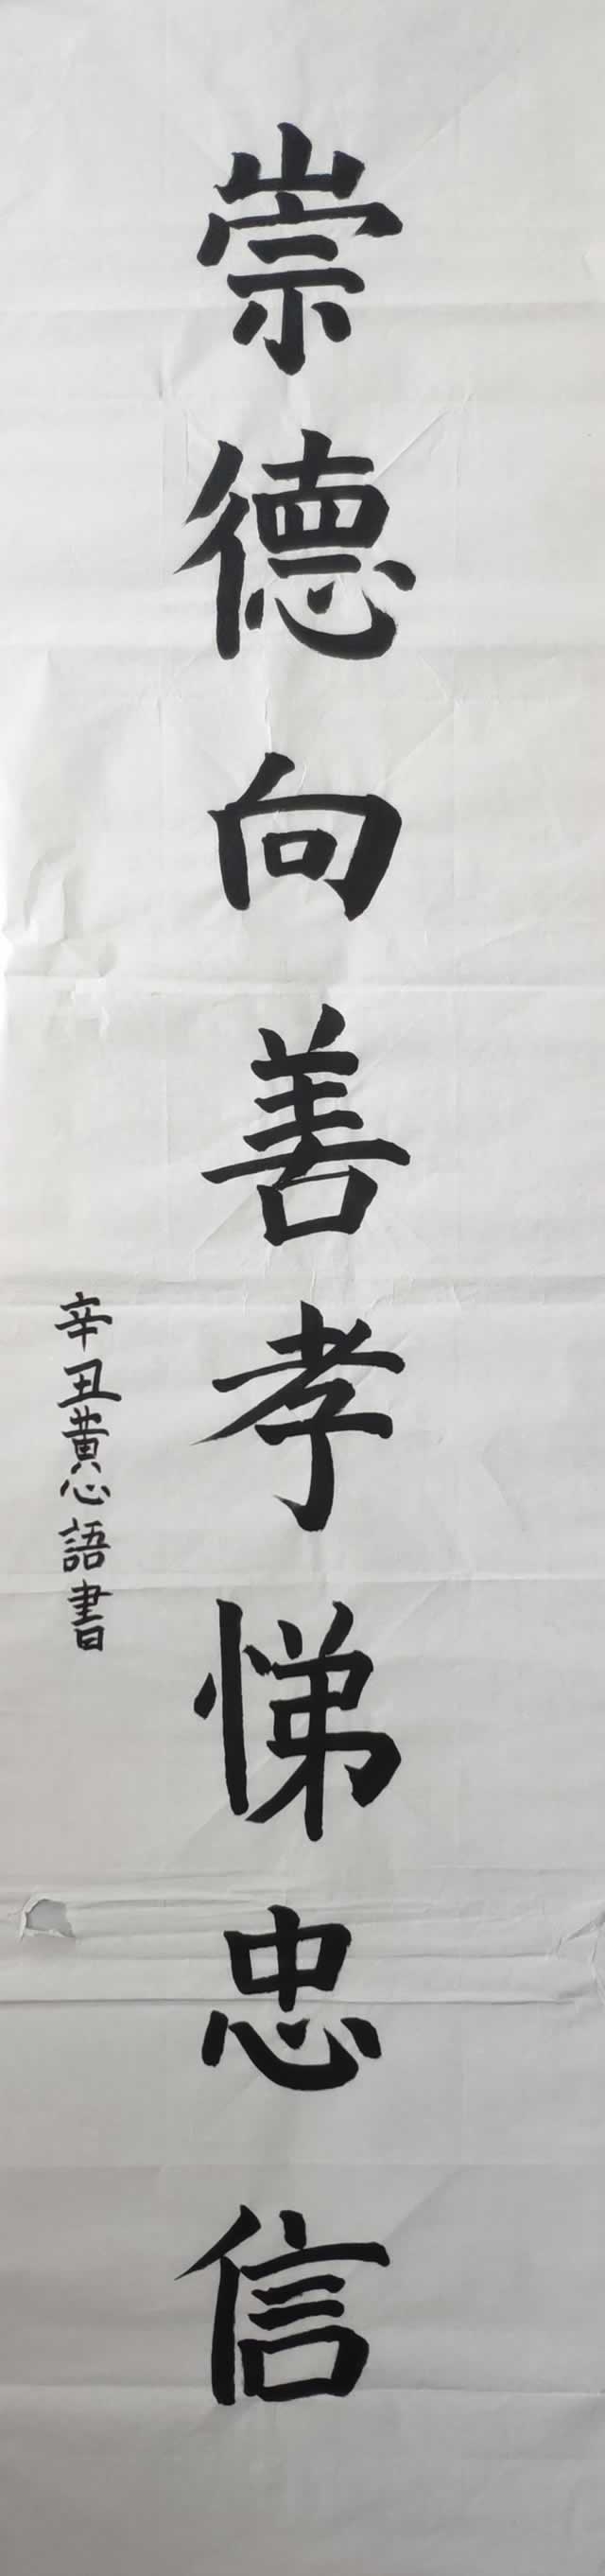 崇德向善孝悌忠信
辛丑黄心語書